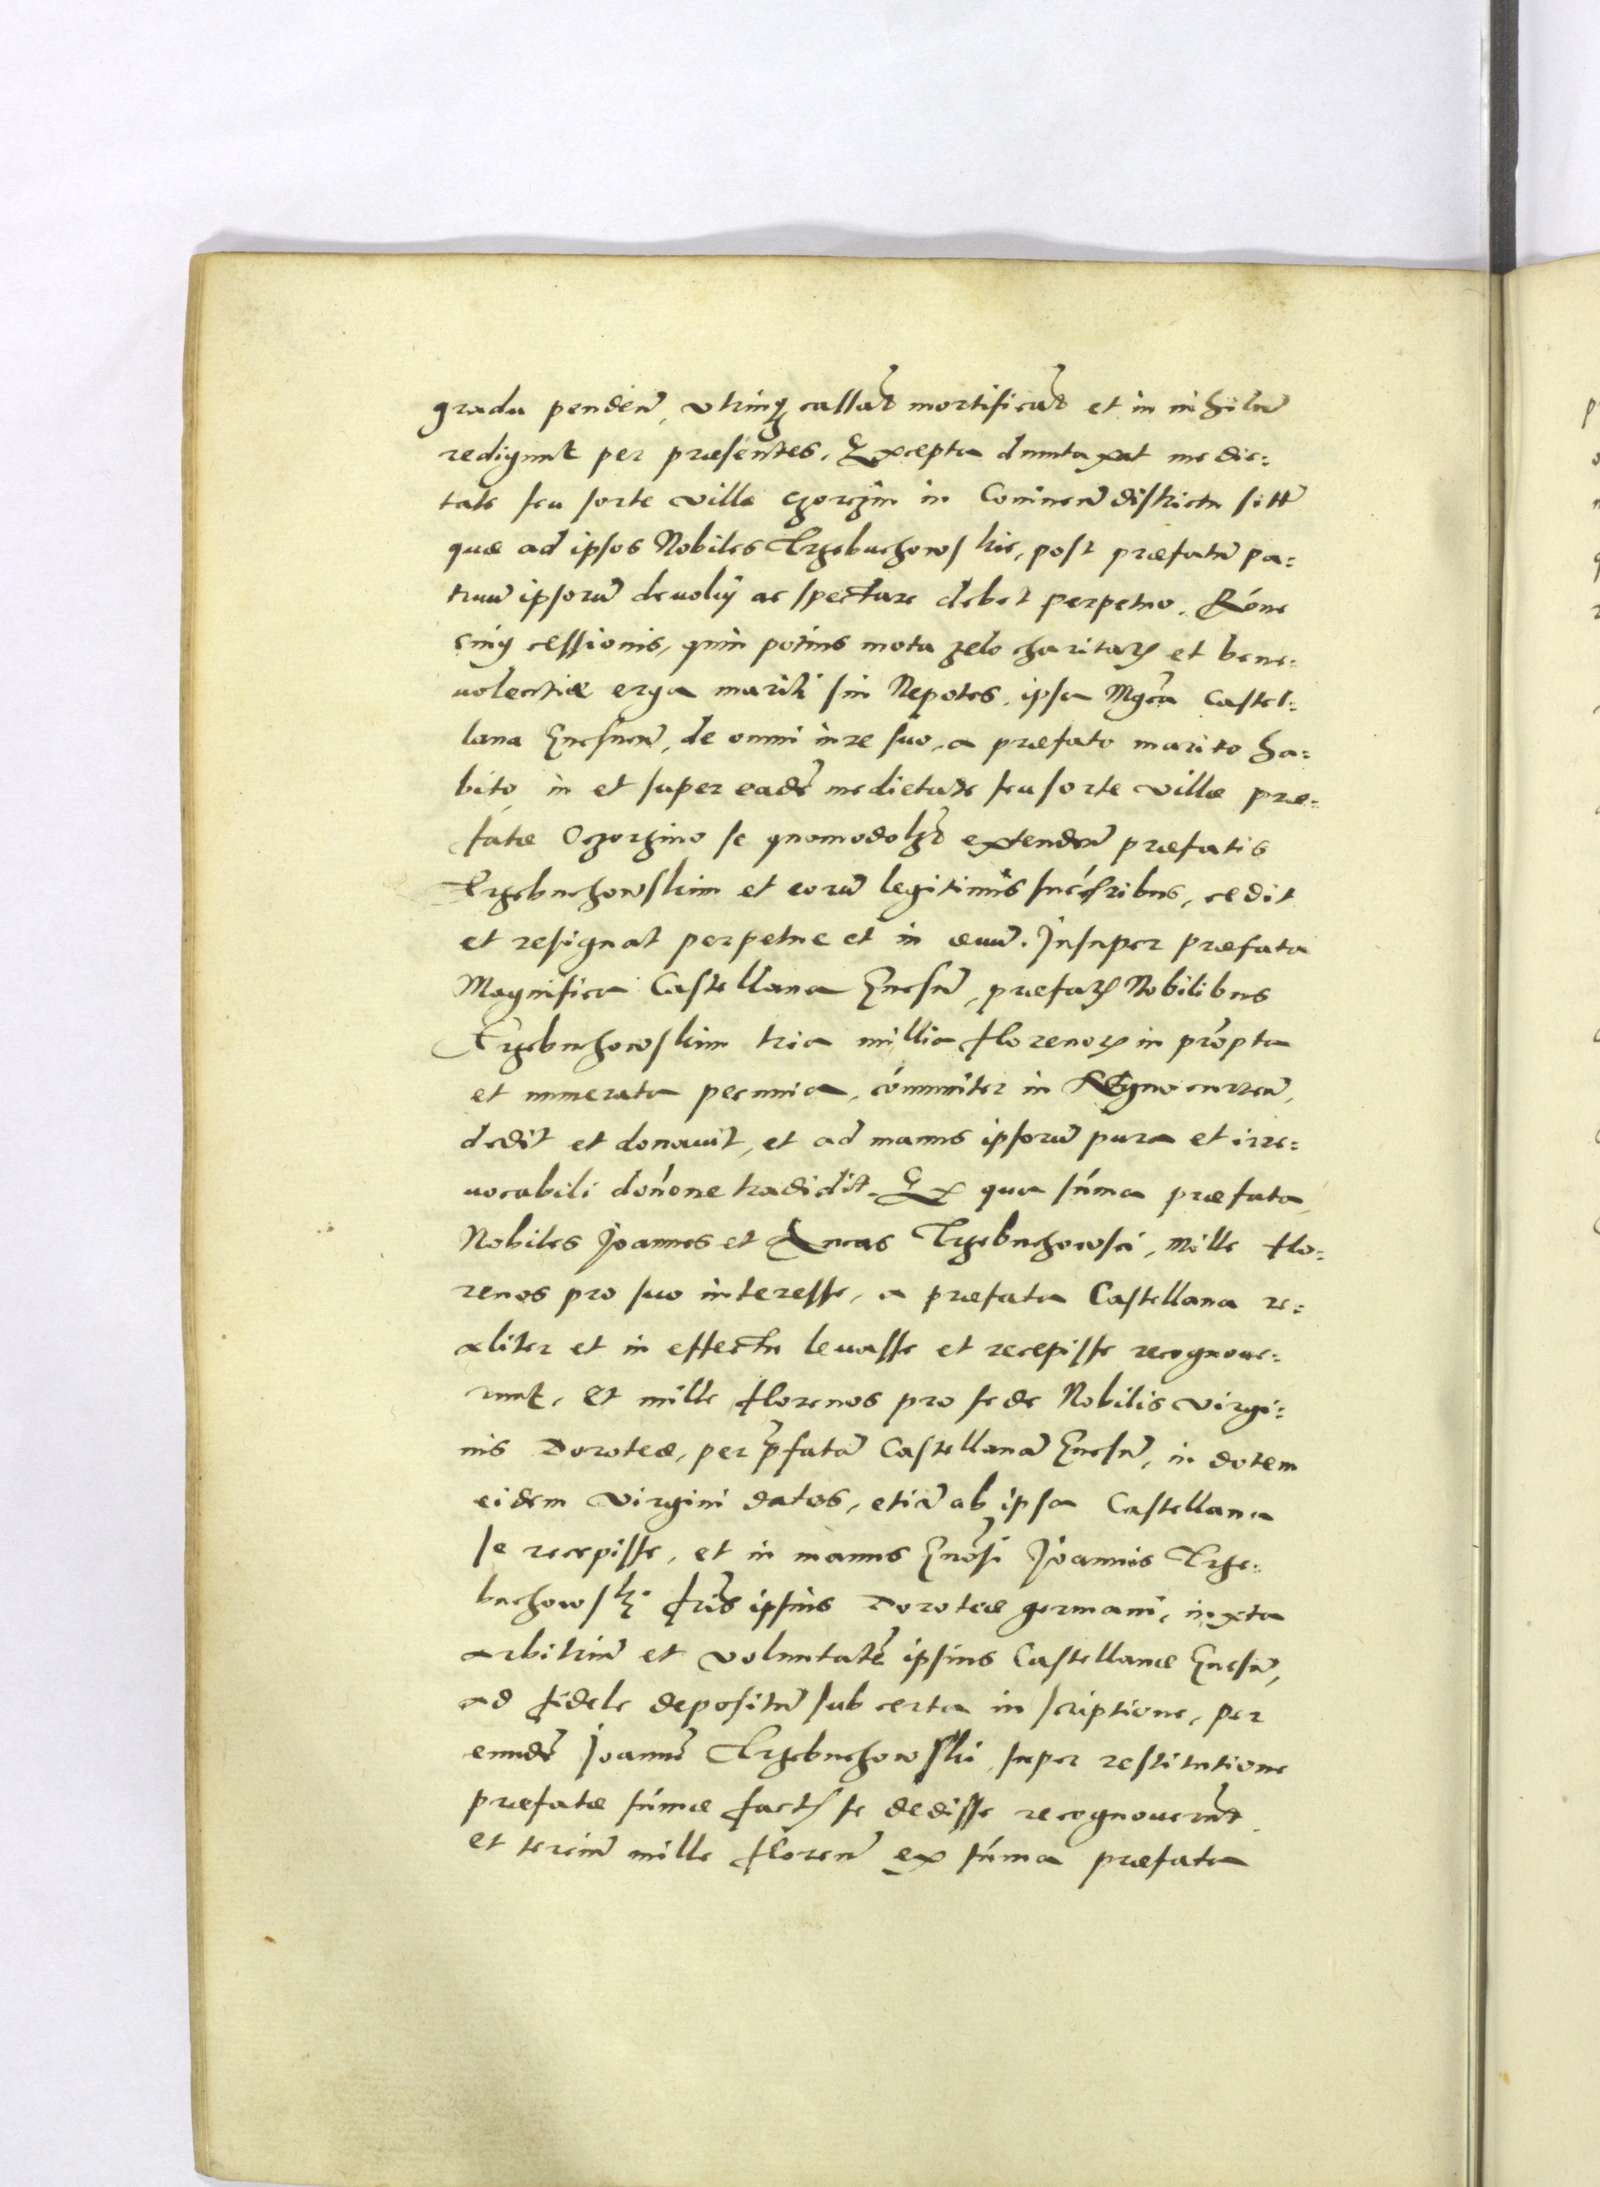 gradu penden̄, utrinq̃ cassãt mortificãt et in nihilū
redigunt per præsentes, Excepta duntaxat medie=
tate seu sorte villæ Czorzin in Coninen̄ districtu sitt̄
quæ ad ipsos Nobiles Trzebuchowskie, post præfatū pa=
truū ipsorū devolvj ac spectare debet perpetuo. Rōne
cuiꝯ cessionis, quin potius mota zelo charitatꝭ et bene=
uolentiæ erga mariti sui Nepotes, ipsa Mgc̄a Castel=
lana Gnesnen̄, de omni iure suo, a præfato marito ha=
bito, in et super eadē medietate seu sorte villæ præ=
fatæ Oczorzino se quomodolꝫt extenden̄ præfatis
Trzebuchowskim et eorū legitimis succ̄ribus, cedit
et resignat perpetue et in æuū. Insuper præfata
Magnifica Castellana Gnesn̄, præfatꝭ Nobilibus
Trzebuchowskim tria millia florenoꝝ in prōpta
et numerata pecunia, cōmuniter in Regno curren̄,
dedit et donauit, et ad manus ipsorū pura et irre=
uocabili donōne tradidit. Ex qua sūma præfata
Nobiles Joannes et Lucas Trzebuchowsci, mille flo=
renos pro suo interesse, a præfata Castellana re=
aliter et in effectu leuasse et recepisse recognoue=
runt, Et mille florenos pro sede Nobilis virgi=
nis Doroteæ, per p̄fatā Castellanā Gnesn̄, in dotem
eidem virgini datos, etiā ab ipsa Castellana
se recepisse, et in manus Gnōsi Joannis Trze=
buchowsk̄ fr̄is ipsius Doroteæ germani, iuxta
arbitriū et voluntatē ipsius Castellanæ Gnesn̄,
ad fidele depositū sub certa inscriptione, per
eundē Joannē Trzebuchowski, super restitutione
præfatæ sūmæ factꝭ se dedisse recognouerūt
et terciū mille floren̄ ex sūma præfata